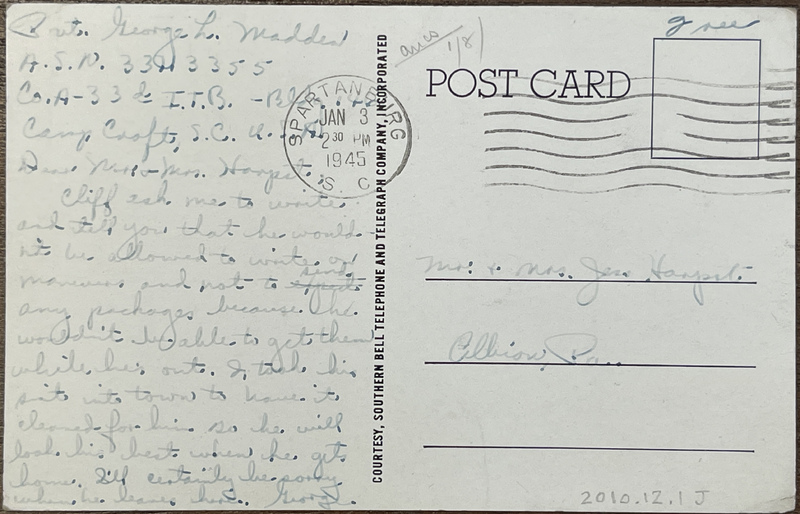 Pvt. George L. Madden
A.S.N. 33413355
Co. A - 33d I.T.B. - Bl
Camp Croft, S.C. U.S.A.
Dear Mr. & Mrs. Harpst:
Cliff ask me to write
and tell you that he would-
n't be allowed to write on
manuvers and not to send
any packages because he
wouldn't be able to get them
while he's out. I took his
suit into town to have it
cleaned for him so he will
look his best when he gets
home. I'll certainly be sorry
when he leaves here. George.
SPARTANBURG
JAN 3
2 30 PM
1945
S. C.
COURTESY, SOUTHERN BELL TELEPHONE AND TELEGRAPH COMPANY, INCORPORATED
ans
1/8
Free
POST CARD
Mr. & Mrs. Jess Harpst.
Albion, Pa.
2010.12.1 J